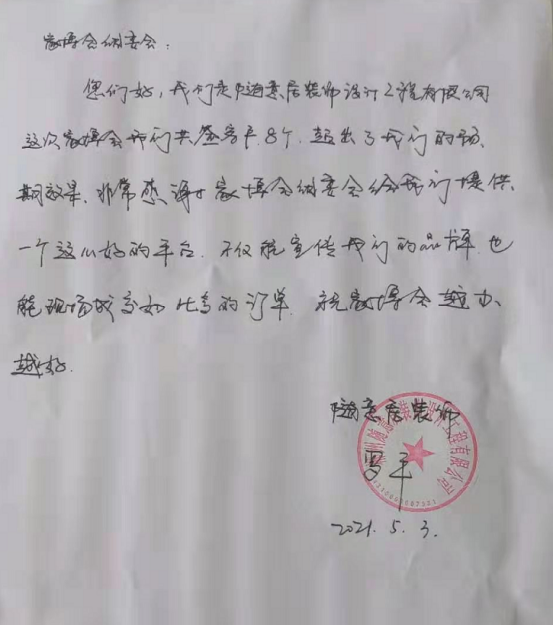 家博会组委会：
您们好，我们是随意居装饰设计工程有限公司
这次家博会我们共签客户8个，超出了我们的预
期效果，非常感谢家博会组委会给我们提供
一个这么好的平台，不仅能宣传我们的品牌，也
能现场成交如此多的订单，祝家博会越办
越好．
随意居装饰
2021.5.3.